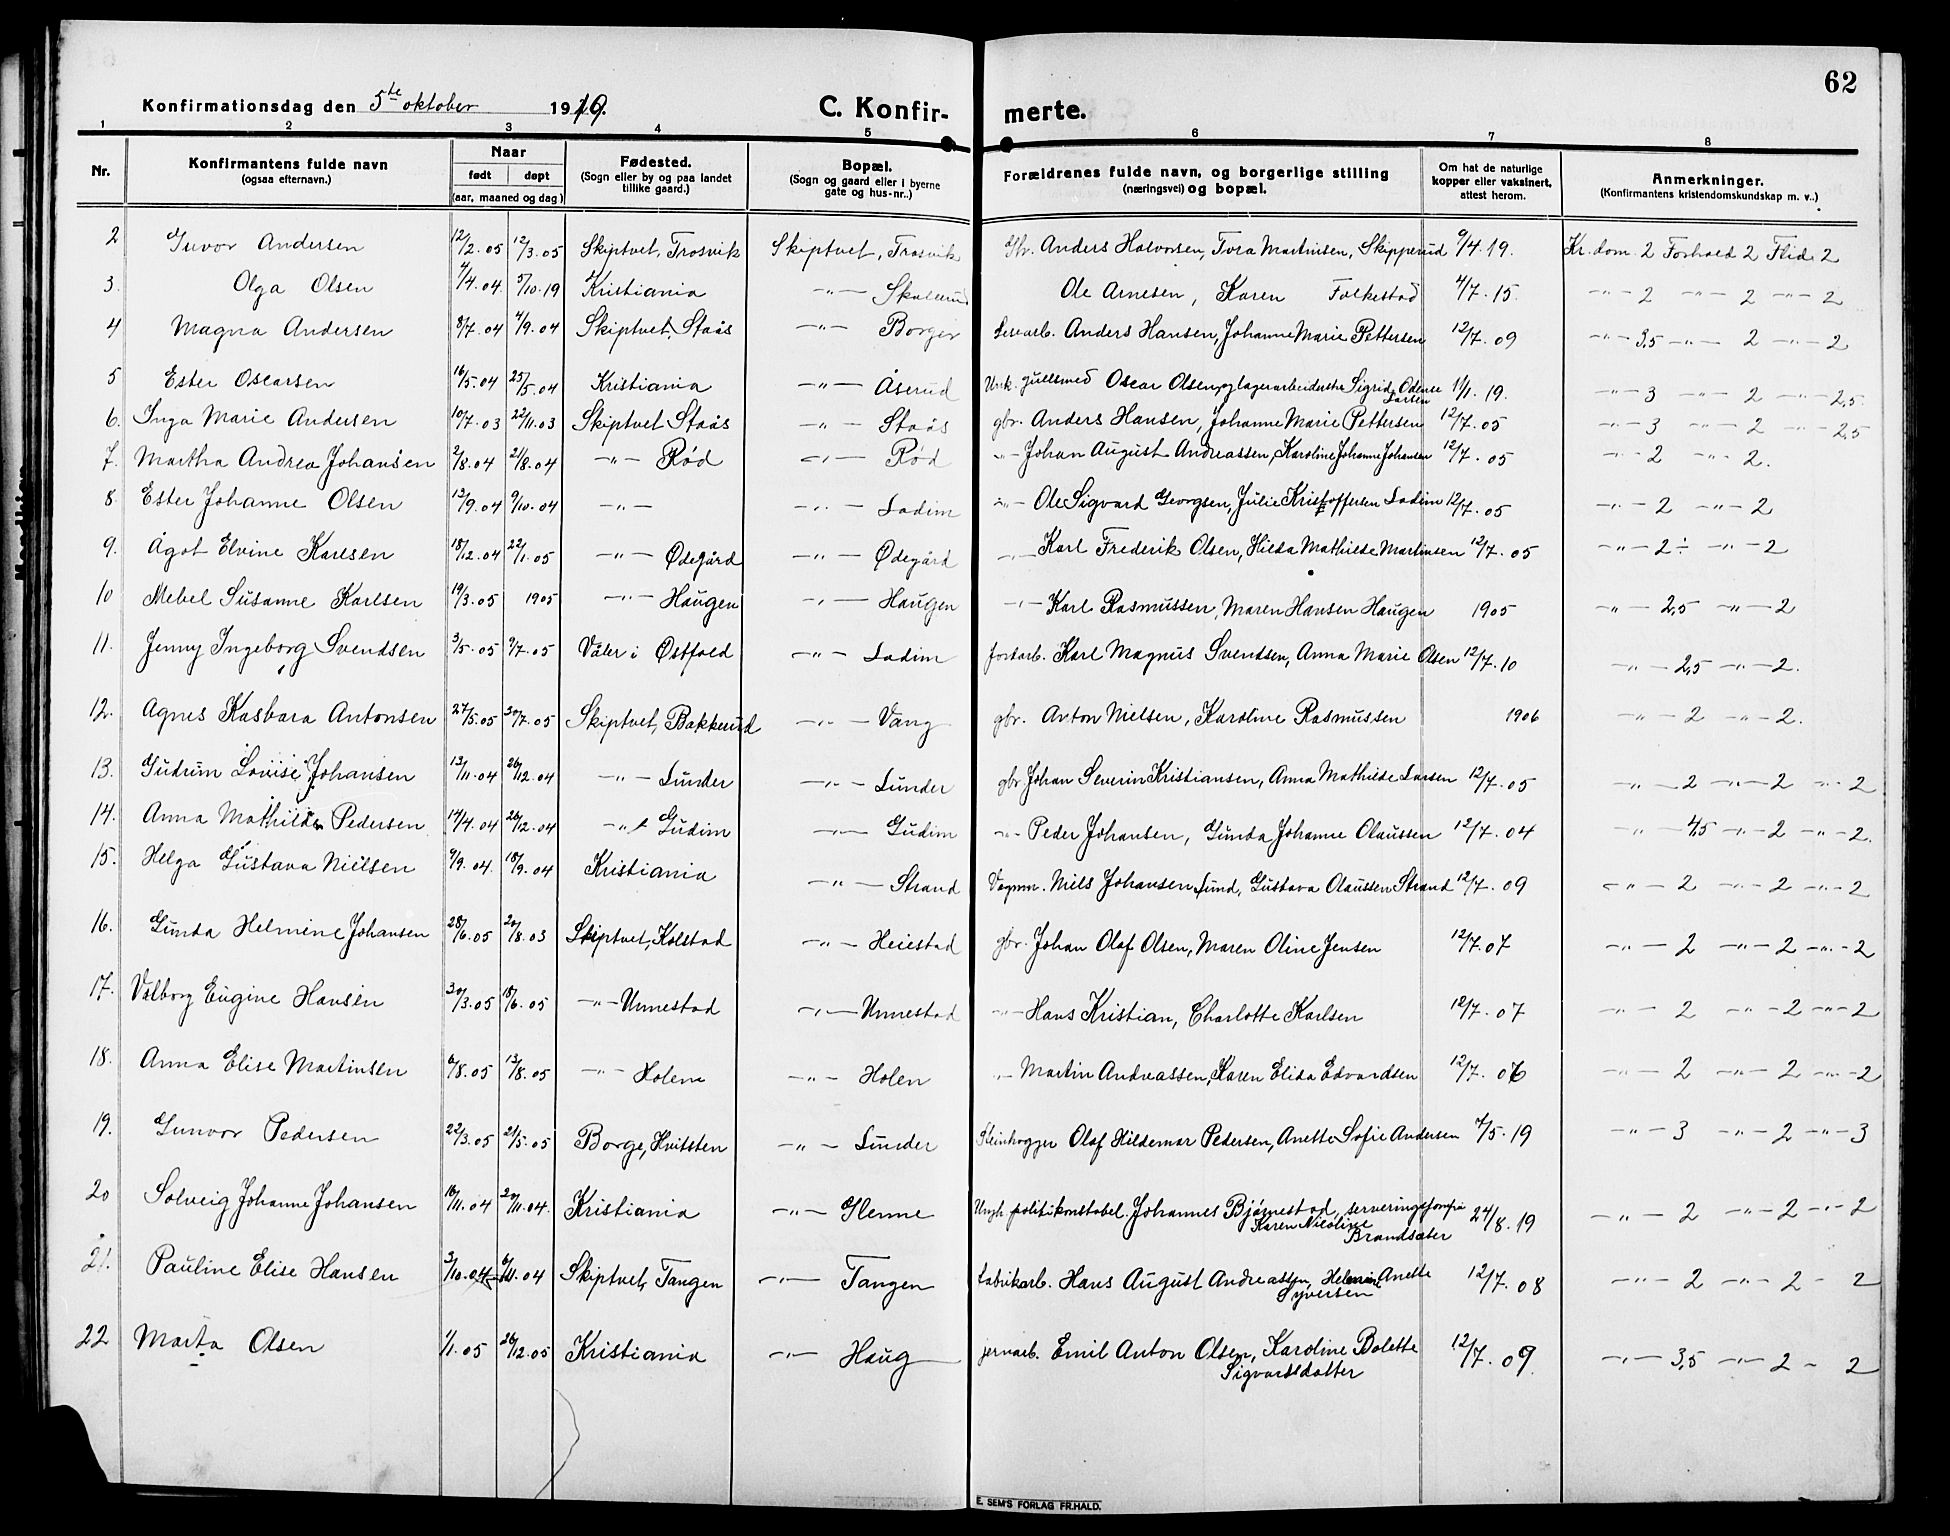 62
Konfirmationsdag den 5te oktober 1919.
C. Konfirmerte.
1 2 3 4 5 6 7 8
Nr.
Konfirmantens fulde navn
(ogsaa efternavn.)
Naar
født døpt
(aar, maaned og dag)
Fødested.
(Sogn eller by og paa landet
tillike gaard.)
Bopæl.
(Sogn og gaard eller i byerne
gate og hus-nr..)
Forældrenes fulde navn, og borgerlige stilling
(næringsvei) og bopæl.
Om hat de naturlige
kopper eller vaksinert,
attest herom.
Anmerkninger.
(Konfirmantens kristendomskundskap m. v..)
2 Guvor Andersen 12/2.05 12/3.05 Skiptvet, Trosvik Skiptvet, Trosvik Gbr. Anders Halvorsen, Tora Martinsen, Skipperud 9/4.19. Kr.dom 2 Forhold 2 Flid 2
3. Olga Olsen 4/4.04 5/10.19 Kristiania -"- Skolerud Ole Arnesen, Karen Folkestad 4/7.15. -"- 2 -"- 2 -"- 2
4 Magna Andersen 8/7.04 4/9.04 Skiptvet, Staås -"- Borger Andersen Hansen, Johanne Marie Pettersen 12/7.09 -"- 3,5 -"- 2 -"- 2
5 Ester Oscarsen 16/5.04 25/5.04 Kristiania -"- Åserud Unk. gullsmed Oscar Olsen, og lagerarbeiderske Sigrid Odense Larsen 11/1.19. -"- 3 -"- 2 -"- 2,5
6. Inga Marie Andersen 10/7.03 22/11.03 Skiptvet Staås -"- Staås gbr. Anders Hansen, Johanne Marie Pettersen 12/7.05 -"- 3 -"- 2 -"- 2,5
7. Martha Andrea Johansen 2/8.04 21/8.04 -"- Rød -"- Rød -"- Johan August Andreassen, Karoline Johanne Johansen 12/7.05 -"- 2 -"- 2.
8. Ester Johanne Olsen 13/9.04 9/10.04 -"- -"- Lodim -"- Ole Sigvard Georgsen, Julie Kristoffersen Lodim 12/7.05 -"- 2 -"- 2
9. Ågot Elvine Karlsen 18/12.04 22/1.05 -"- Ødegård -"- Ødegård -"- Karl Frederik Olsen, Hilda Mathilde Martinsen 12/7.05 -"- 2÷ -"- 2
10 Mebel Susanne Karlsen 19/3.05 1905 -"- Haugen -"- Haugen -"- Karl Rasmussen, Maren Hansen Haugen 1905 -"- 2,5 -"- 2
11. Jenny Ingeborg Svendsen 3/5.05 9/7.05 Våler i Østfold -"- Lodim forstarb. Karl Magnus Svendsen, Anna Marie Olsen 12/7.10 -"- 2,5 -"- 2.
12. Agnes Kasbara Antonsen 27/5.05 30/7.05 Skiptvet, Bakkerud -"- Vang gbr. Anton Nielsen, Karoline Rasmussen 1906 -"- 2 -"- 2.
13. Gudrun Lovise Johansen 13/11.04 26/12.04 -"- Lunder -"- Lunder gbr Johan Severin Kristiansen, Anna Mathilde Larsen 12/7.05 -"- 2 -"- 2 -"- 2
14. Anna Mathilde Pedersen 14/4.04 26/12.04 -"- Gudim -"- Gudim -"- Peder Johansen, Gunda Johanne Olaussen 12/7.04 -"- 4,5 -"- 2 -"- 2.
15. Helga Gustava Nielsen 9/9.04. 18/9.04 Kristiania -"- Strand Vognm. Nils Johansen Lund, Gustava Olaussen Strand 12/7.09 -"- 2 -"- 2 -"- 2
16. Gunda Helmine Johansen 28/6.05 20/8.03 Skiptvet, Kolstad -"- Heiestad gbr. Johan Olaf Olsen, Maren Oline Jensen 12/7.07 -"- 2 -"- 2 -"- 2
17. Valborg Eugine Hansen 30/3.05 18/6.05 -"- Unnestad -"- Unnestad -"- Hans Kristian, Charlotte Karlsen 12/7.07 -"- 2 -"- 2 -"- 2
18. Anna Elise Martinsen 6/8.05 13/8.05 -"- Holene -"- Holen -"- Martin Andreassen, Karen Elida Edvardsen 12/7.06 -"- 2 -"- 2 -"- 2
19. Gunvor Pedersen 22/3.05 21/5.05 Borge, Hvitsten -"- Lunder Steinhogger Olaf Hildemar Pedersen, Anette Sofie Andersen 4/5.19 -"- 3 -"- 2 -"- 3
20 Solveig Johanne Johansen 16/11.04 20/11.04. Kristiania -"- Glenne Ungk. politikonstabel. Johannes Bjørnestad, serveringsjomfru Karen Nicoline Brandsæter 24/8.19 -"- 2 -"- 2 -"- 2
21. Pauline Elise Hansen 3/10.04 6/11.04 Skiptvet, Tangen -"- Tangen fabrikarb. Hans August Andreassen, Helmine Anette Syversen 12/7.08 -"- 2 -"- 2 - 2
22 Marta Olsen 1/1.05 26/12.05 Kristiania -"- Haug jernarb. Emil Anton Olsen, Karoline Bolette Sigvardsdatter 12/7.09. -"- 3,5 -"- 2 - 2
E. SEM'S FORLAG FR.HALD.